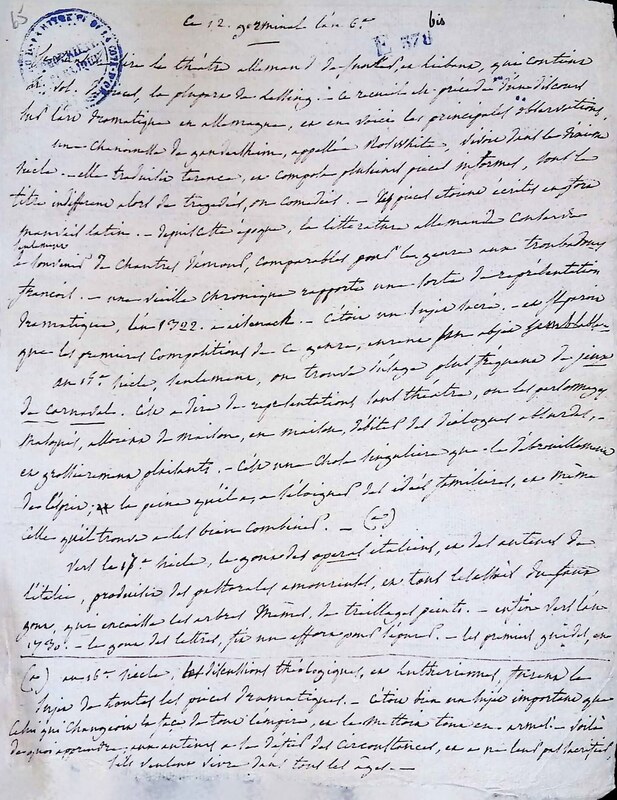 65
ce 12. germinal l'an 6e.
bis
E 378
lire le théatre allemand de junker, et liebaut, qui contient
vol. la plupart de lessing. - Ce recueil est précédé d'un discours
sur l'art dramatique en allemagne, et en voici les principales observations.
une chanoinesse de gandersheim, appellée Roswhite, vivoit dans le dixième
siècle. - elle traduisit terence, et composa plusieurs pieces informes, sous le
titre indifferent alors de tragedies, ou comedies. - Ses pieces etoient ecrites en fort
mauvais latin. - depuis cette epoque, la litterature allemande conserve
seulement
le souvenir de chantres d'amour, comparables pour le genre aux troubadours
francois. - une vieille chronique rapporte une sorte de représentation
dramatique, l'an 1322. a eisenack. - C'étoit un sujet sacré. - et il paroit
que les premieres compositions de ce genre, eurent un objet semblable.
au 15e. siècle, seulement, on trouve l'usage plus fréquent de jeux
de carnaval. C'est a dire de représentations sans théatre, ou les personnages
masqués, alloient de maison, en maison, débiter des dialogues absurdes,
et grossierement plaisants. - C'est une chose singuliere que le débrouillement
de l'esprit; la peine qu'il a, a s'éloigner des idées familieres, et même
celle qu'il trouve a les bien combiner. - (+)
vers le 17e siècle, le gout des operas italiens, et des auteurs de
l'italie, produisit des pastorales amoureuses, et tous les essais du faux
gout, qui encaisse les arbres mêmes, de treillages peints. - enfin vers l'an
1730. - le gout des lettres, fit un effort pour s'épurer. - les premiers guides, en
(+) au 16e. siècle, les discussions théologiques, et lutheriennes, furent le
sujet de toutes les pieces dramatiques. - C'étoit bien un sujet important que
celui qui changeoit la face de tout l'empire, et le mettoit tout en armes. - voilà
de quoi apprendre, aux auteurs a le détail des circonstances, et a ne leur pas sacrifier,
s'ils veulent vivre dans tous les ages. -